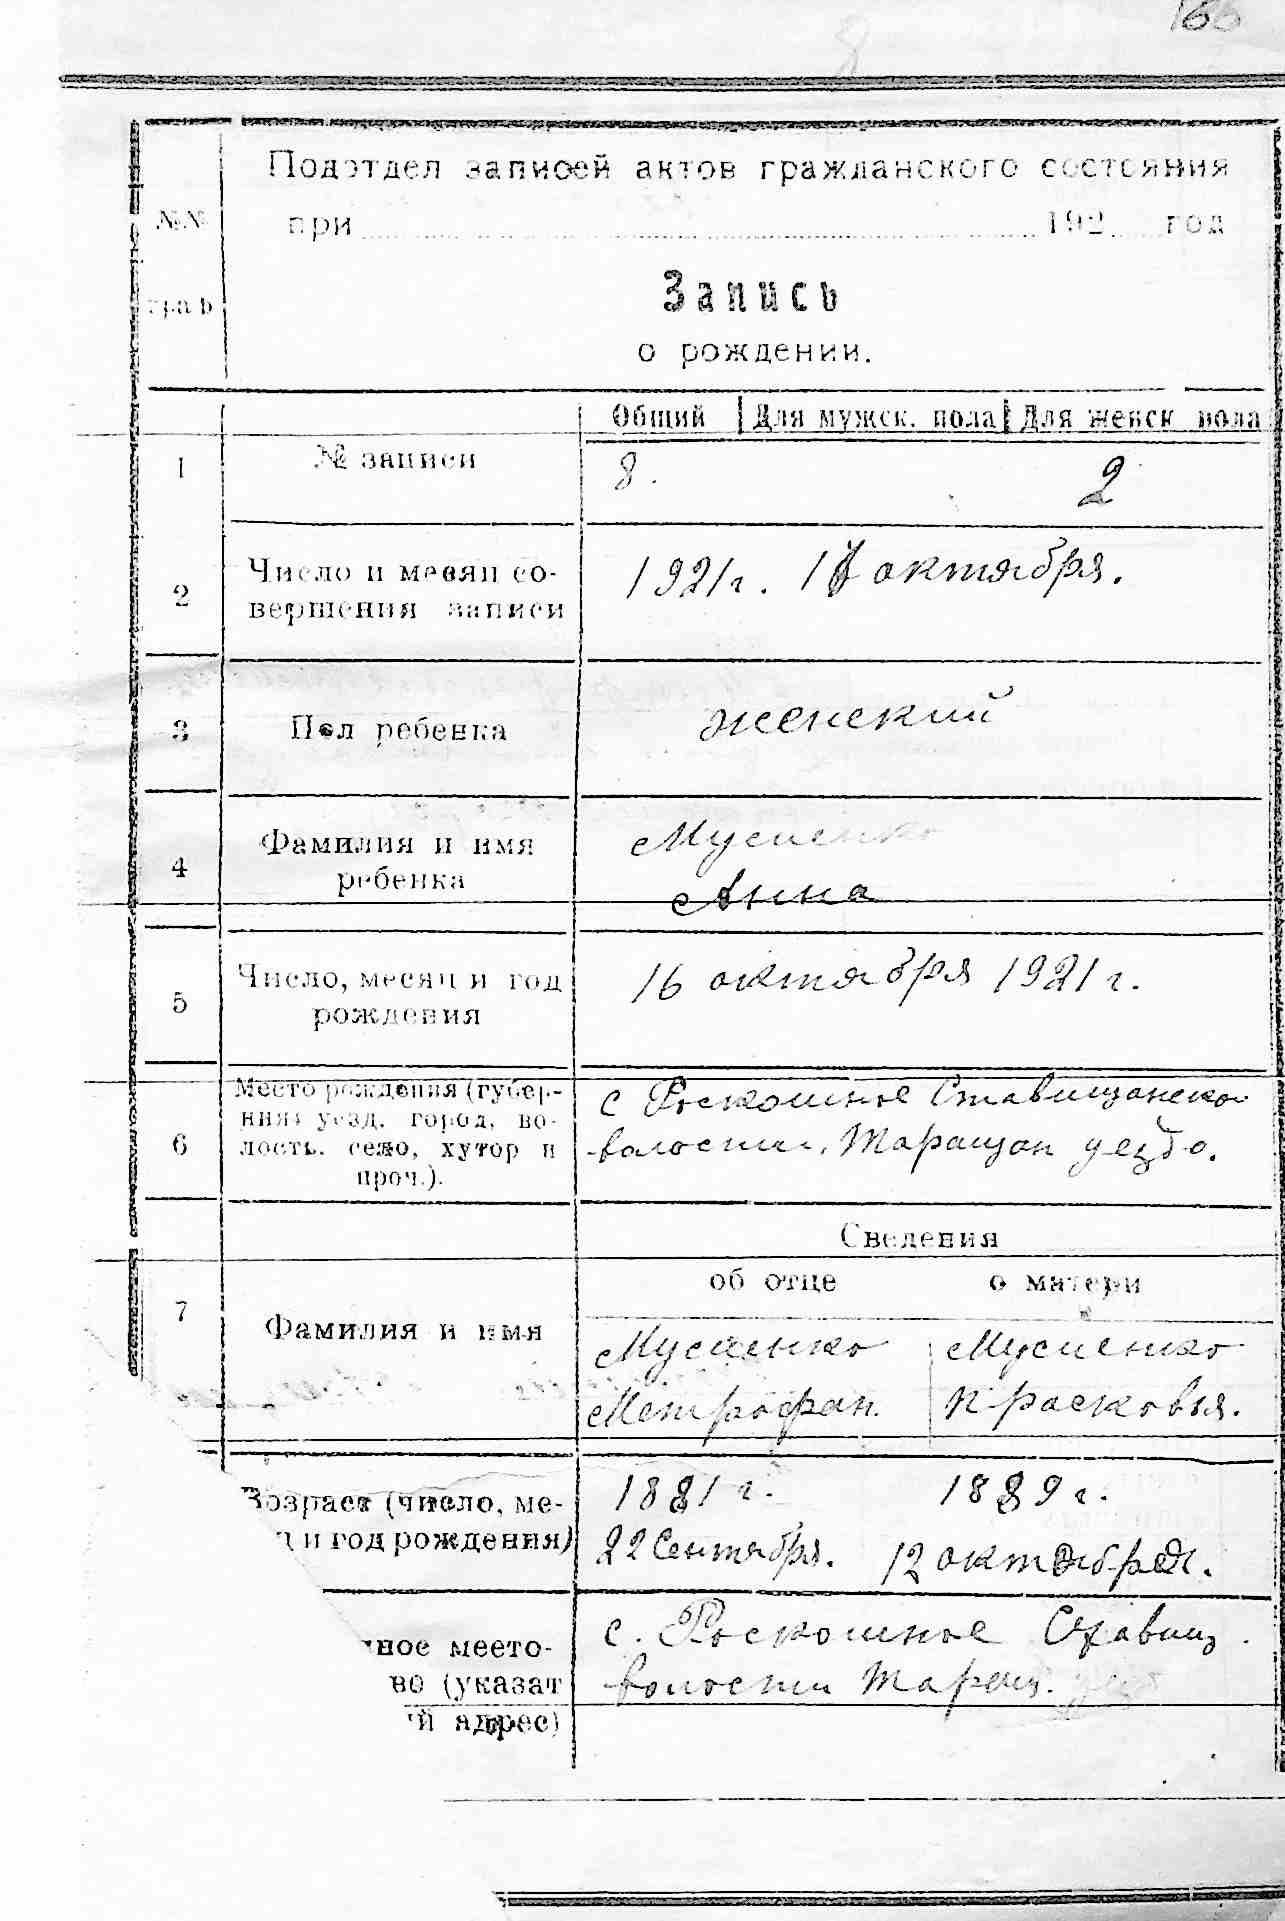 166
8
Подотдел записей актов гражданского состояния
№№ при 192 год
граф
Запись
о рождении.
Общий Для мужск. пола Для женск пола
1 № записи 8. 2
2 Число и месяц со-
вершения записи
1921 г. октября.
3 Пол ребенка женский
4 Фамилия и имя
ребенка
Мусиенко
Анна
5 Число, месяц и год
рождения
16 октября 1921 г.
6 Место рождения (губер-
ния, уезд, город, во-
лость, село, хутор и
проч.).
с Роскошное Ставищанско
волости, Таращан уезда.
Сведения
об отце о матери
7 Фамилия и имя
Мусиенко Мусиенко
Метрофан. Прасковья.
Возраст (число, ме-
ц и год рождения)
1881 г. 1889 г.
22 Сентября. 12 октября.
ное место-
во (указат
й адрес)
с. Роскошное Ставищ.
волости Таращ. уез